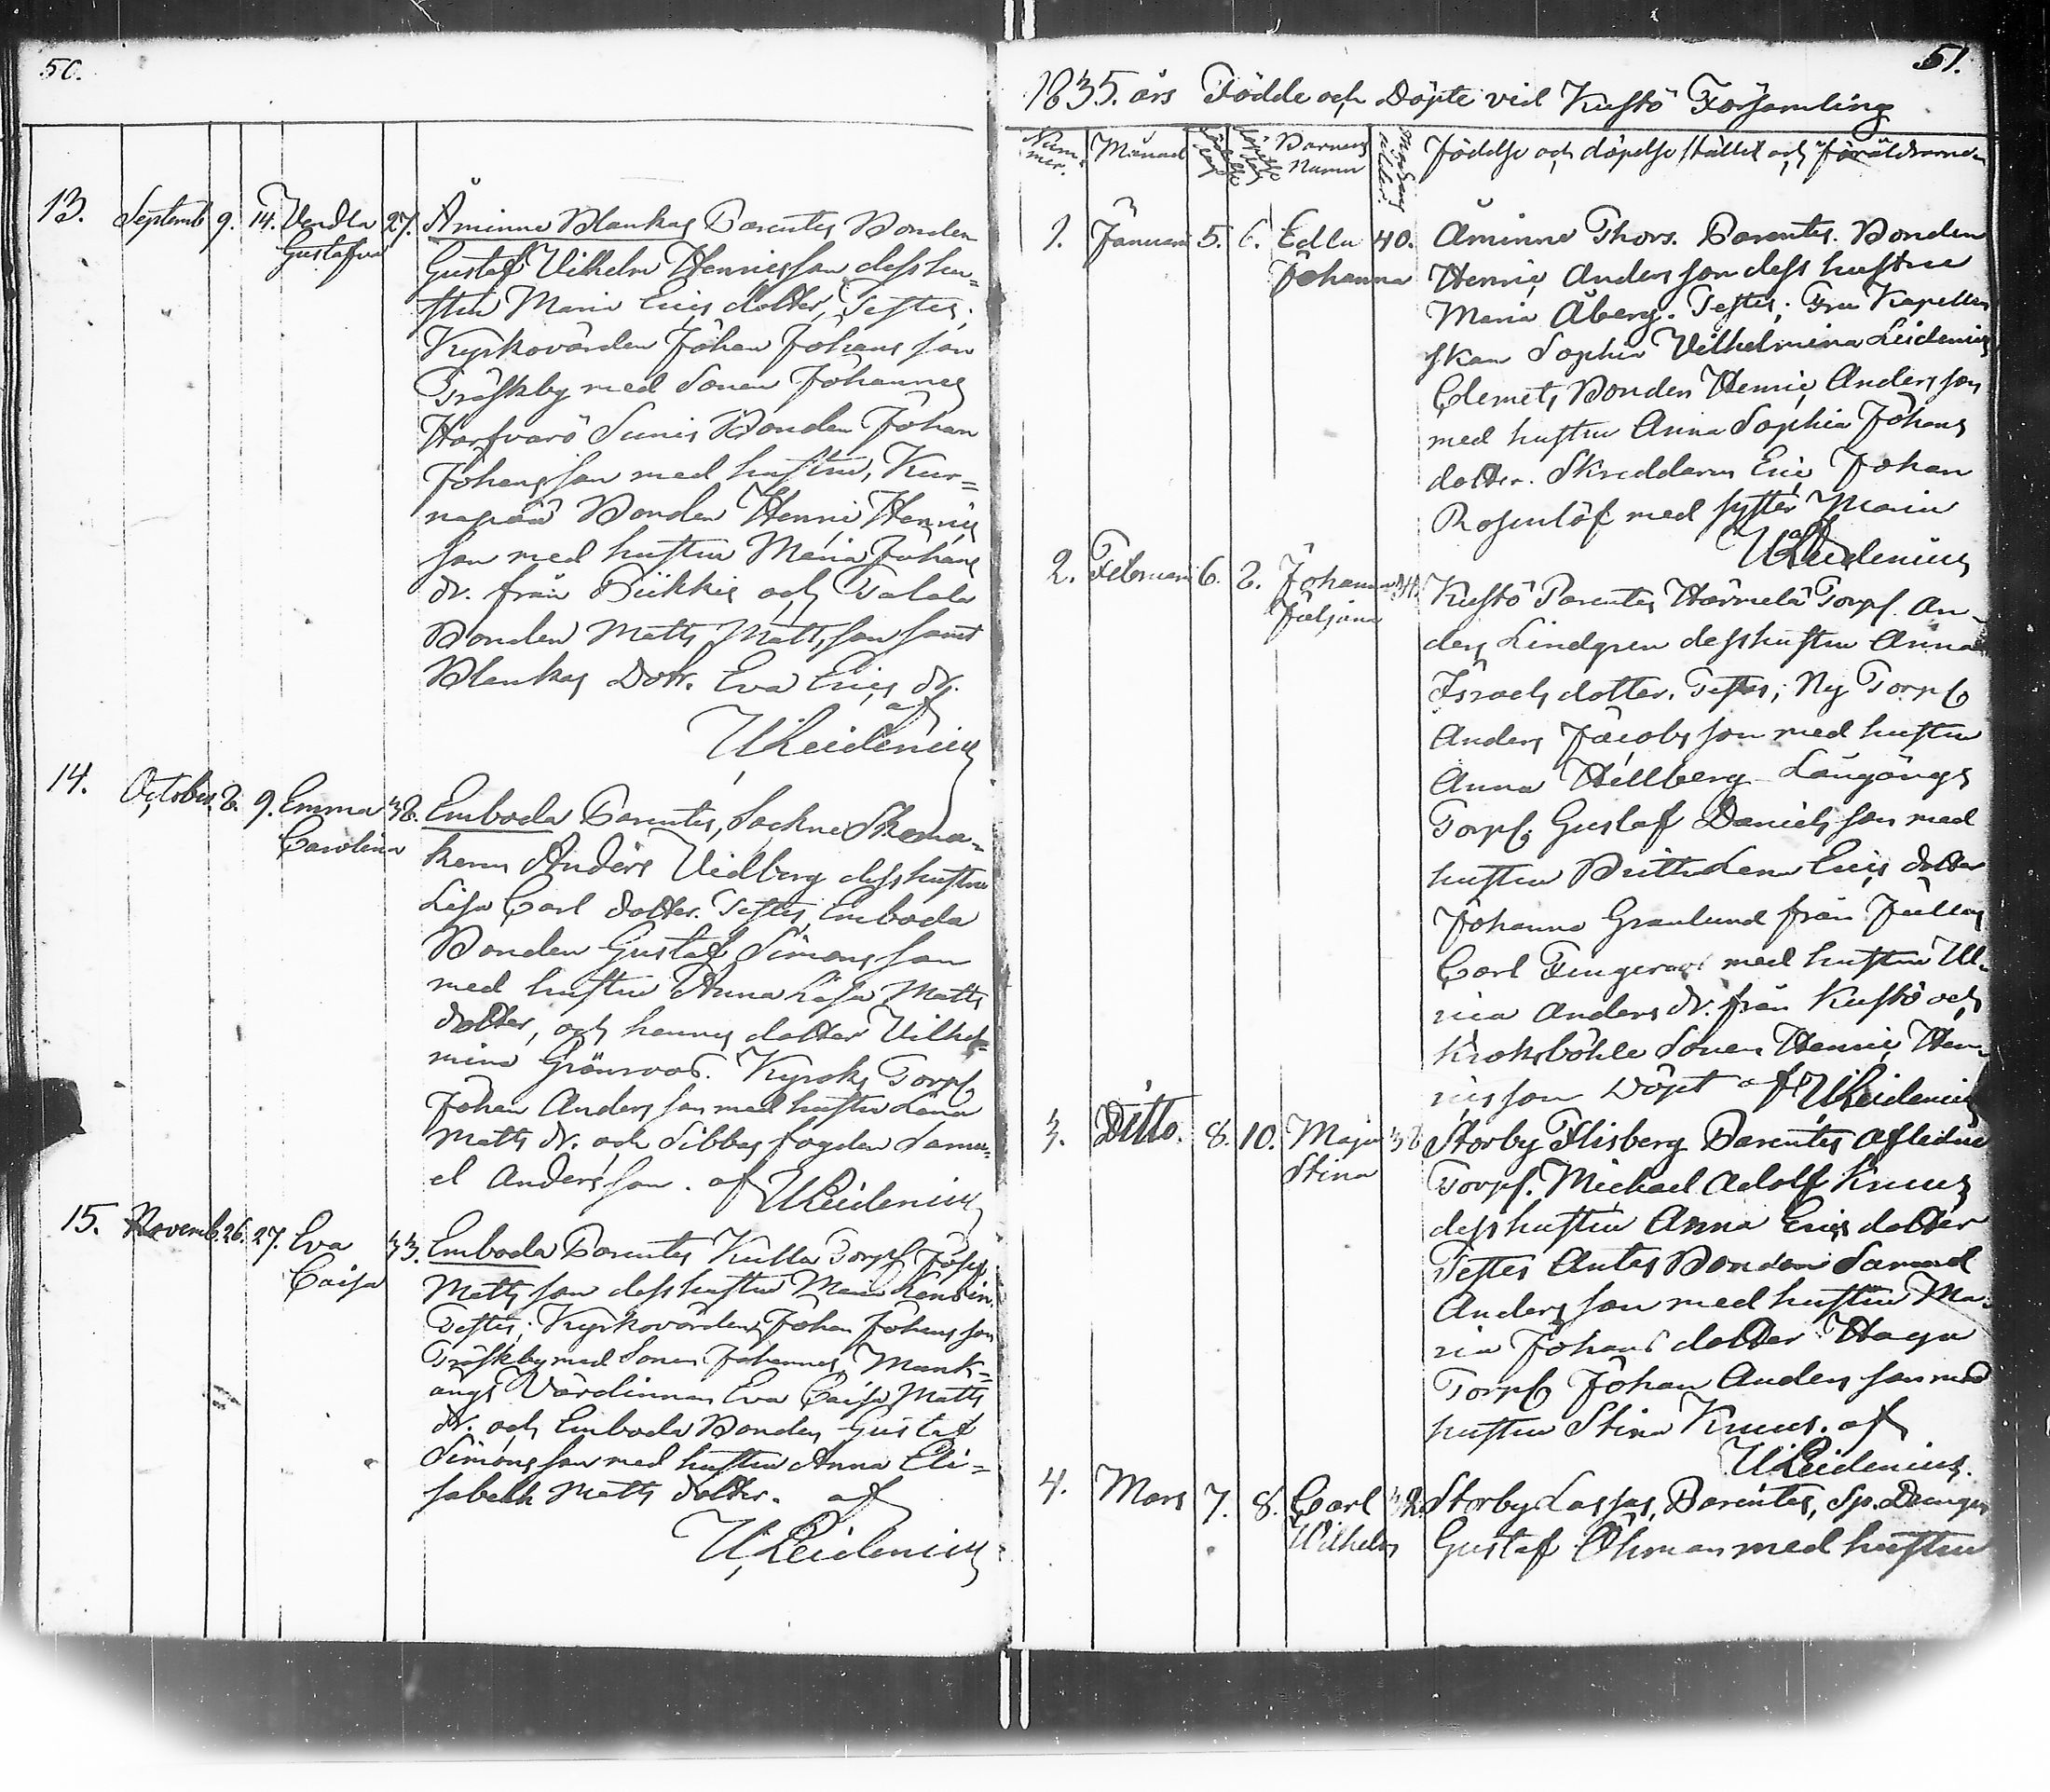 50.
13. Septemb 9. 14. Vendla 27. Åminne Blankas Parentes Bonden
Gustafva Gustaf Vilhelm Henricsson dess hu-
stru Maria Erics dotter, Testes;
Kyrkovärden Johan Johans son
Träskby med Sonen Johannes
Harfvarö Sunis Bonden Johan
Johansson med hustru, Kur=
napää Bonden Henric Henrics
son med hustru Maria Johans
dr. från Piikkis och Talala
Bonden Matts Matts son samt
Blankas Dotr. Eva Erics dr.
af
U Leidenius
14. October 8. 9. Emma 38. Emboda Parentes, Sockne Skoma-
Carolina karen Anders Vidberg dess hustru
Lisa Carl dotter. Testes Emboda
Bonden Gustaf Simons son
med hustru Anna Lisa Matts
dotter, och hennes dotter Vilhel=
mina Grönroos. Kyroks Torpf
Johan Anders son med hustru Lena
Matts dr. och Sibbas fogden Samu=
el Anders son. af U Leidenius
15. Novemb. 26. 27. Eva 33. Emboda Parentes Kulla Torpf Josef
Caisa Matts son dess hustru Maria
Testes; Kyrkovärden Johan Johans son
Träskby med Sonen Johannes, Munk=
ängs Värdinnan Eva Caisa Matts
dr. och Emboda Bonden Gustaf
Simons son med hustru Anna Eli=
sabeth Matts dotter. af
U Leidenius
51.
1835. års Födde och Döpte vid Kustö Församling
Num=mer. Månad Födelse dag Döpelse dag Barnens Namn Modrens ålder. Födelse och döpelse stället och föräldrarne
1. Januari 5. 6. Edla 40. Åminne Thors. Parentes. Bonden
Johanna Henric Anders son dess hustru
Maria Åberg. Testes; Fru Kapellan
skan Sophia Vilhelmina Leidenius
Clemets Bonden Henric Anders son
med hustru Anna Sophia Johans
dotter. Skreddaren Eric Johan
Rosenlöf med syster Maria
af
U Leidenius
2. Februari 6. 8. Johanna Kustö Parentes Härmelä Torpf. An-
Juliana ders Lindgren dess hustru Anna
Israels dotter. Testes; Ny Torpf
Anders Jacobs son med hustru
Anna Hellberg Långängs
Torpf. Gustaf Daniels son med
hustru Britta Lena Erics dotter
Johanna Granlund från Jullas
Carl Fingerroos med hustru Ul-
rica Anders dr. från Kustö och
Kroksböhle Sonen Henric Hen-
ricsson Döpt af U Leidenius
3. Ditto. 8. 10. Maja 38 Storby Flisberg Parentes afledne
Stina Torpf. Michael Adolf Knuus
dess hustru Anna Erics dotter
Testes Antas Bonden Samuel
Anders son med hustru Ma=
ria Johans dotter Haga
Torpf Johan Anders son med
hustru Stina Knuus. af
U Leidenius.
4. Mars 7. 8. Carl 32. Storby Lassas, Parentes, Sp. Drängen
Wilhelm Gustaf Öhman med hustru